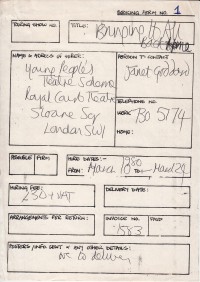 BOOKING FORM NO. 1
TOURING SHOW NO.
TITLE:
NAME & ADDRESS OF HIRER:
Young People's
Theatre Scheme
Royal Court Theatre
Sloane Sq
London SW1
PERSON TO CONTACT
Janet Goddard
TELEPHONE NO.
WORK: 730 5174
HOME:
POSSIBLE
FIRM
HIRE DATES:
FROM: March TO: March 29
HIRING FEE:
£30 + VAT
DELIVERY DATE:
ARRANGEMENTS FOR RETURN:
INVOICE NO.
PAID
POSTERS/INFO SENT & ANY OTHER DETAILS:
to deliver